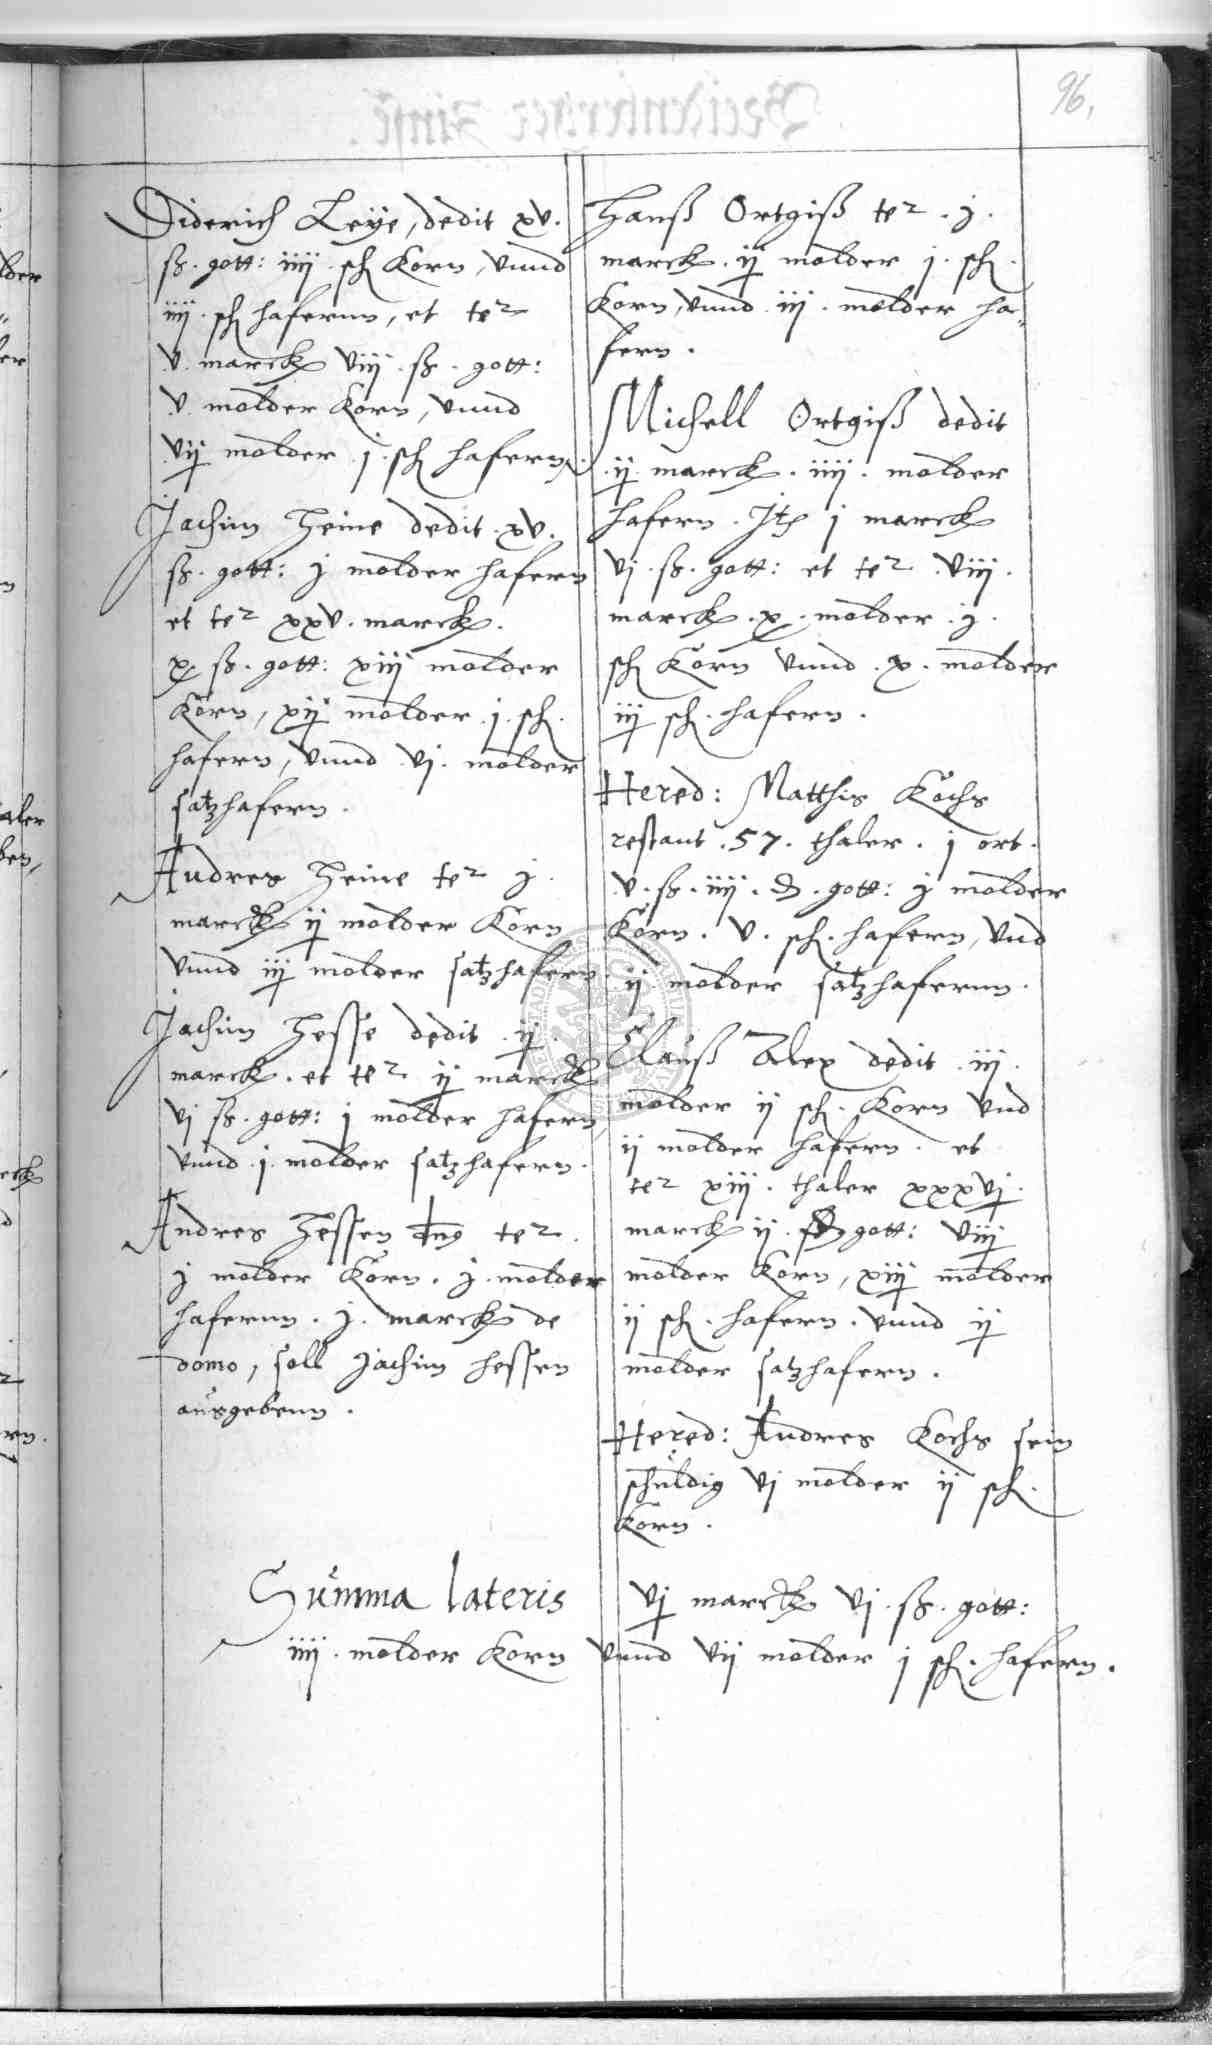 96.
Diderich Leye, dedit xv.
ß. gott: iiij. sch Korn, vnnd
iiij. sch hafernn, et te²
v. marck viij. ß. gott:
v. molder Korn, vnnd
vij molder j. sch hafern.
Jachim Heine dedit. xv.
ß. gott: j molder hafern
et te² xxv. marck.
x ß. gott: xiij molder
Korn, xij molder. j. sch.
hafern, vnnd vj. molder
satzhafern.
Andres Heine te² j.
marck ij molder Korn
vnnd iij molder satzhafern.
Jachim Hesse dedit. ij.
marck. et te² ij marck
vj ß. gott: j molder hafern,
vnnd. j. molder satzhafern.
Andres Hessen te².
j molder Korn. j. molder
hafernn. j. marck de
domo, soll Jachim Hessen
ausgebenn.
Hanß Ortgiß te². j.
marck. ij molder j. sch.
Korn, vnnd iij. molder ha-
fern.
Michell Ortgiß dedit
ij marck. iiij. molder
hafern. Jt j marck
vj. ß. gott: et te² viij.
marck. x. molder. j.
sch Korn vnnd. x. molder
iij sch. hafern.
Hered: Matthis Kochs
restant. 57. thaler. j ort.
v. ß. iiij. d. gott: j molder
Korn. v. sch. hafern, vnd
ij molder satzhafernn.
Clauß Alex dedit. iij.
molder ij sch. Korn vnd
ij molder hafern. et
te² xiij. thaler xxxvj.
marck ij. gott: viij
molder Korn, xiij molder
ij sch. hafern. vnnd ij
molder satzhafern.
Hered: Andres Kochs sein
schuldig vj molder ij sch.
Korn.
Summa lateris vj marck vj. ß. gott:
iiij. molder Korn vnnd vij molder j sch. hafern.